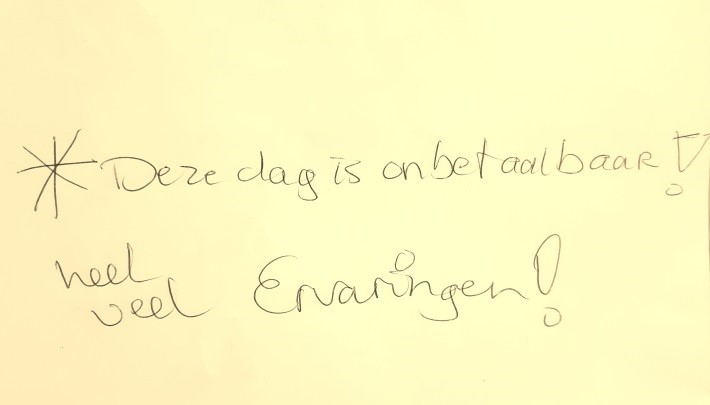 * Deze dag is onbetaalbaar!
heel veel Ervaringen!